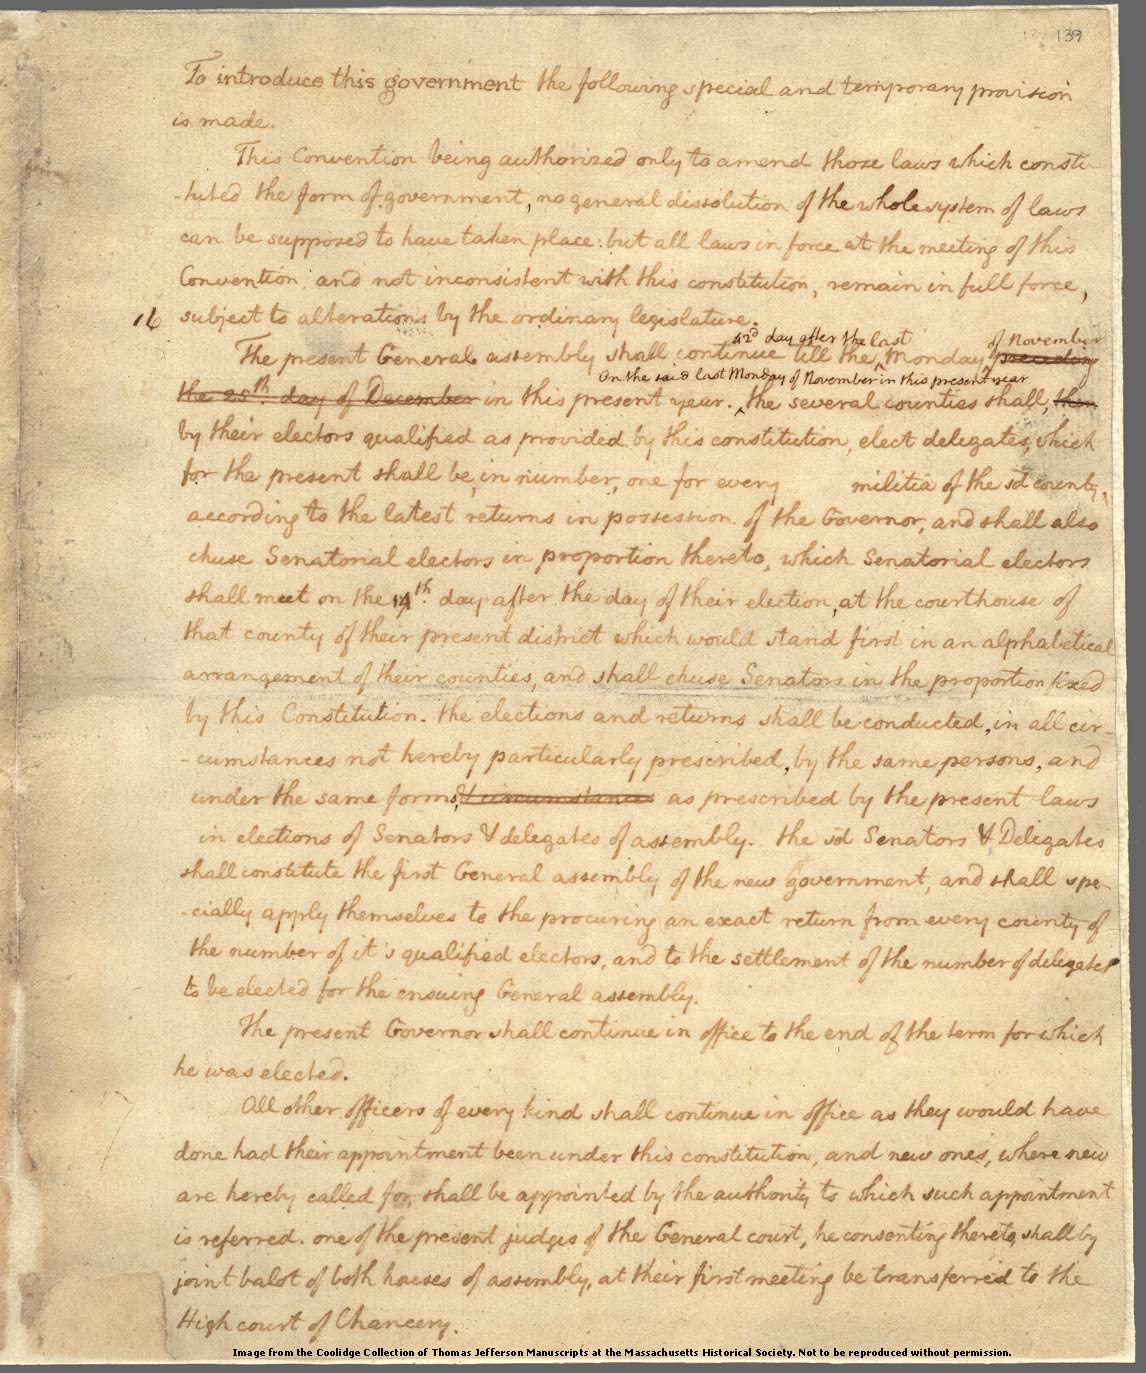 139
To introduce this government the following special and temporary provision
is made.
This Convention being authorized only to amend those laws which consti-
-tuted the form of government, no general dissolution of the whole system of laws
can be supposed to have taken place: but all laws in force at the meeting of this
Convention, and not inconsistent with this constitution, remain in full force,
16 subject to alterations by the ordinary legislature.
42d day after the last of November
The present General assembly shall continue till the Monday preceding
On the said last Monday of November in this present year
the 25th day of December in this present year. the several counties shall, then
by their electors qualified as provided by this constitution, elect delegates, which
for the present shall be, in number, one for every militia of the sd county,
according to the latest returns in possession of the Governor, and shall also
chuse Senatorial electors in proportion thereto, which Senatorial electors
shall meet on the 14th. day after the day of their election, at the courthouse of
that county of their present district which would stand first in an alphabetical
arrangement of their counties, and shall chuse Senators in the proportion fixed
by this Constitution. the elections and returns shall be conducted, in all cir-
-cumstances not hereby particularly prescribed, by the same persons, and
under the same forms, & circumstances as prescribed by the present laws
in elections of Senators & delegates of assembly. the sd Senators & Delegates
shall constitute the first General assembly of the new government, and shall spe-
-cially apply themselves to the procuring an exact return from every county of
the number of it's qualified electors, and to the settlement of the number of delegates
to be elected for the ensuing General assembly.
The present Governor shall continue in office to the end of the term for which
he was elected.
All other officers of every kind shall continue in office as they would have
done had their appointment been under this constitution, and new ones, where new
are hereby called for, shall be appointed by the authority to which such appointment
is referred. one of the present judges of the General court, he consenting thereto, shall by
joint balot of both houses of assembly, at their first meeting be transferred to the
High court of Chancery.
Image from the Coolidge Collection of Thomas Jefferson Manuscripts at the Massachusetts Historical Society. Not to be reproduced without permission.